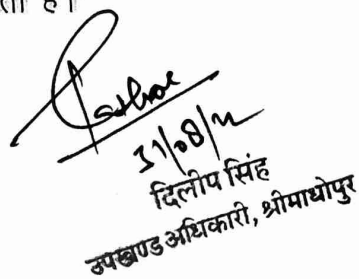 है।
31/08/22
दिलीप सिंह
उपखण्ड अधिकारी, श्रीमाधोपुर